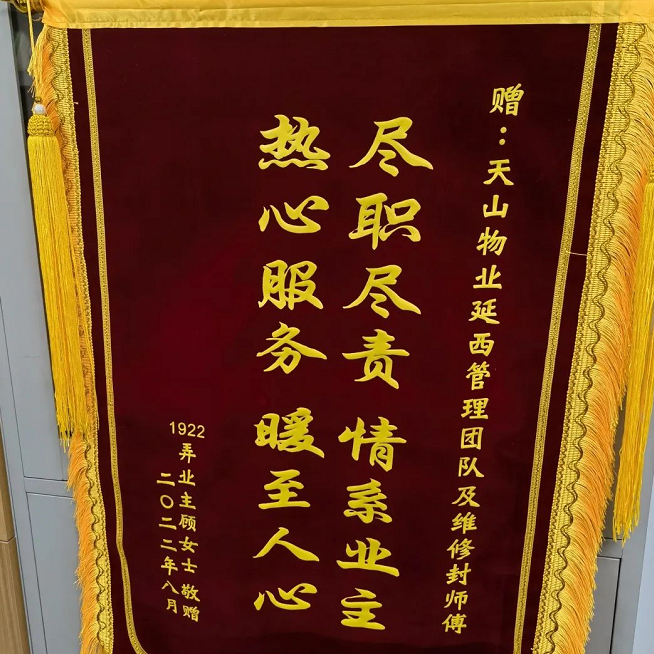 赠：天山物业延西管理团队及维修封师傅
尽职尽责 情系业主
热心服务 暖至人心
1922弄业主顾女士 敬赠
二〇二二年八月